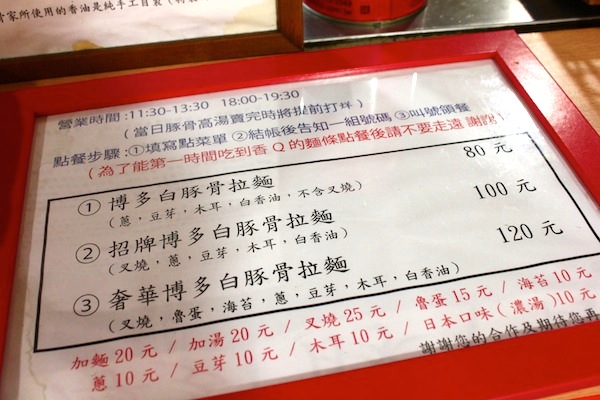 家所使用的香油是純手工自製
營業時間:11:30-13:30 18:00-19:30
(當日豚骨高湯賣完時將提前打烊)
點餐步驟:①填寫點菜單 ②結帳後告知一組號碼 ③叫號領餐
(為了能第一時間吃到香Q的麵條點餐後請不要走遠 謝謝)
① 博多白豚骨拉麵 80 元
(蔥,豆芽,木耳,白香油,不含叉燒)
② 招牌博多白豚骨拉麵 100 元
(叉燒,蔥,豆芽,木耳,白香油)
③ 奢華博多白豚骨拉麵 120 元
(叉燒,魯蛋,海苔,蔥,豆芽,木耳,白香油)
加麵20元 / 加湯20元 / 叉燒25元 / 魯蛋15元 / 海苔10元
蔥10元 / 豆芽10元 / 木耳10元 / 日本口味(濃湯)10元
謝謝您的合作及期待您再